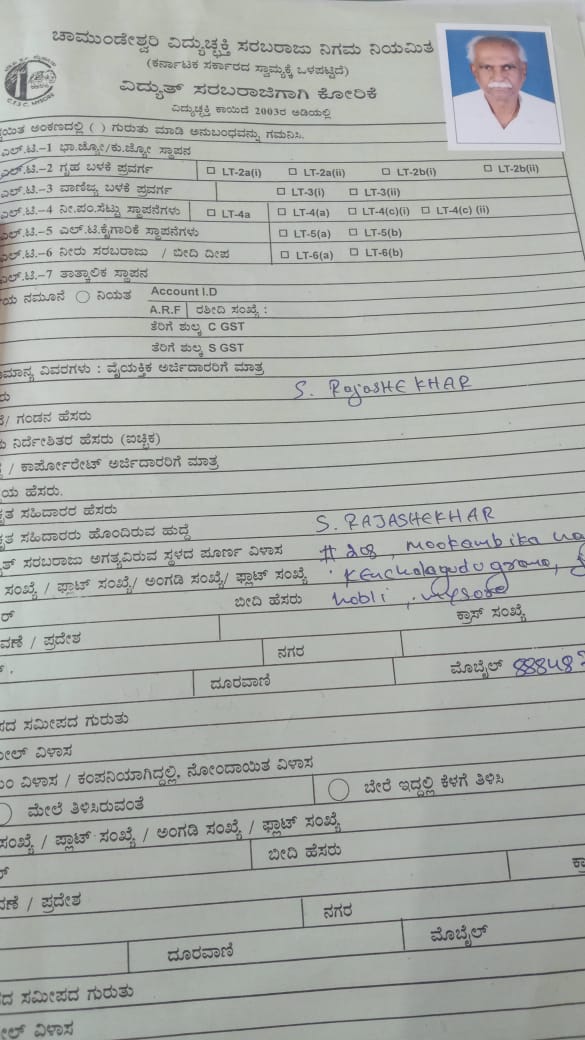 ಚಾಮುಂಡೇಶ್ವರಿ ವಿದ್ಯುಚ್ಛಕ್ತಿ ಸರಬರಾಜು ನಿಗಮ ನಿಯಮಿತ
(ಕರ್ನಾಟಕ ಸರ್ಕಾರದ ಸ್ವಾಮ್ಯಕ್ಕೆ ಒಳಪಟ್ಟಿದೆ)
ವಿದ್ಯುತ್ ಸರಬರಾಜಿಗಾಗಿ ಕೋರಿಕೆ
ವಿದ್ಯುಚ್ಛಕ್ತಿ ಕಾಯಿದೆ 2003ರ ಅಡಿಯಲ್ಲಿ
C.E.S.C. MYSORE
ಅಂಕಣದಲ್ಲಿ ( ) ಗುರುತು ಮಾಡಿ ಅನುಬಂಧವನ್ನು ಗಮನಿಸಿ.
ಎಲ್.ಟಿ.-1 ಭಾ.ಜ್ಯೋ/ಕು.ಜ್ಯೋ ಸ್ಥಾಪನ
ಎಲ್.ಟಿ.-2 ಗೃಹ ಬಳಕೆ ಪ್ರವರ್ಗ □ LT-2a(i) □ LT-2a(ii) □ LT-2b(i) □ LT-2b(ii)
ಎಲ್.ಟಿ.-3 ವಾಣಿಜ್ಯ ಬಳಕೆ ಪ್ರವರ್ಗ □ LT-3(i) □ LT-3(ii)
ಎಲ್.ಟಿ.-4 ನೀ.ಪಂ.ಸೆಟ್ಟು ಸ್ಥಾಪನೆಗಳು □ LT-4a □ LT-4(a) □ LT-4(c)(i) □ LT-4(c) (ii)
ಎಲ್.ಟಿ.-5 ಎಲ್.ಟಿ.ಕೈಗಾರಿಕೆ ಸ್ಥಾಪನೆಗಳು □ LT-5(a) □ LT-5(b)
ಎಲ್.ಟಿ.-6 ನೀರು ಸರಬರಾಜು / ಬೀದಿ ದೀಪ □ LT-6(a) □ LT-6(b)
ಎಲ್.ಟಿ.-7 ತಾತ್ಕಾಲಿಕ ಸ್ಥಾಪನ
ನಮೂನೆ ○ ನಿಯತ Account I.D
A.R.F ರಶೀದಿ ಸಂಖ್ಯೆ :
ತೆರಿಗೆ ಶುಲ್ಕ C GST
ತೆರಿಗೆ ಶುಲ್ಕ S GST
ವಿವರಗಳು : ವೈಯಕ್ತಿಕ ಅರ್ಜಿದಾರರಿಗೆ ಮಾತ್ರ
S. RajaSHEKHAR
/ ಗಂಡನ ಹೆಸರು
ನಿರ್ದೇಶಿತರ ಹೆಸರು (ಐಚ್ಛಿಕ)
/ ಕಾರ್ಪೋರೇಟ್ ಅರ್ಜಿದಾರರಿಗೆ ಮಾತ್ರ
ಹೆಸರು.
ಸಹಿದಾರರ ಹೆಸರು
ಸಹಿದಾರರು ಹೊಂದಿರುವ ಹುದ್ದೆ S. RAJASHEKHAR
ಸರಬರಾಜು ಅಗತ್ಯವಿರುವ ಸ್ಥಳದ ಪೂರ್ಣ ವಿಳಾಸ # 208, mookambika
ಸಂಖ್ಯೆ / ಫ್ಲಾಟ್ ಸಂಖ್ಯೆ/ ಅಂಗಡಿ ಸಂಖ್ಯೆ/ ಫ್ಲಾಟ್ ಸಂಖ್ಯೆ Kenchalagudu grama,
ಬೀದಿ ಹೆಸರು hobli, mysore ಕ್ರಾಸ್ ಸಂಖ್ಯೆ
/ ಪ್ರದೇಶ ನಗರ
ದೂರವಾಣಿ ಮೊಬೈಲ್ 88848
ಸಮೀಪದ ಗುರುತು
ವಿಳಾಸ
ವಿಳಾಸ / ಕಂಪನಿಯಾಗಿದ್ದಲ್ಲಿ, ನೋಂದಾಯಿತ ವಿಳಾಸ
○ ಮೇಲೆ ತಿಳಿಸಿರುವಂತೆ ○ ಬೇರೆ ಇದ್ದಲ್ಲಿ ಕೆಳಗೆ ತಿಳಿಸಿ
ಸಂಖ್ಯೆ / ಪ್ಲಾಟ್ ಸಂಖ್ಯೆ / ಅಂಗಡಿ ಸಂಖ್ಯೆ / ಫ್ಲಾಟ್ ಸಂಖ್ಯೆ
ಬೀದಿ ಹೆಸರು
/ ಪ್ರದೇಶ ನಗರ
ದೂರವಾಣಿ ಮೊಬೈಲ್
ಸಮೀಪದ ಗುರುತು
ವಿಳಾಸ